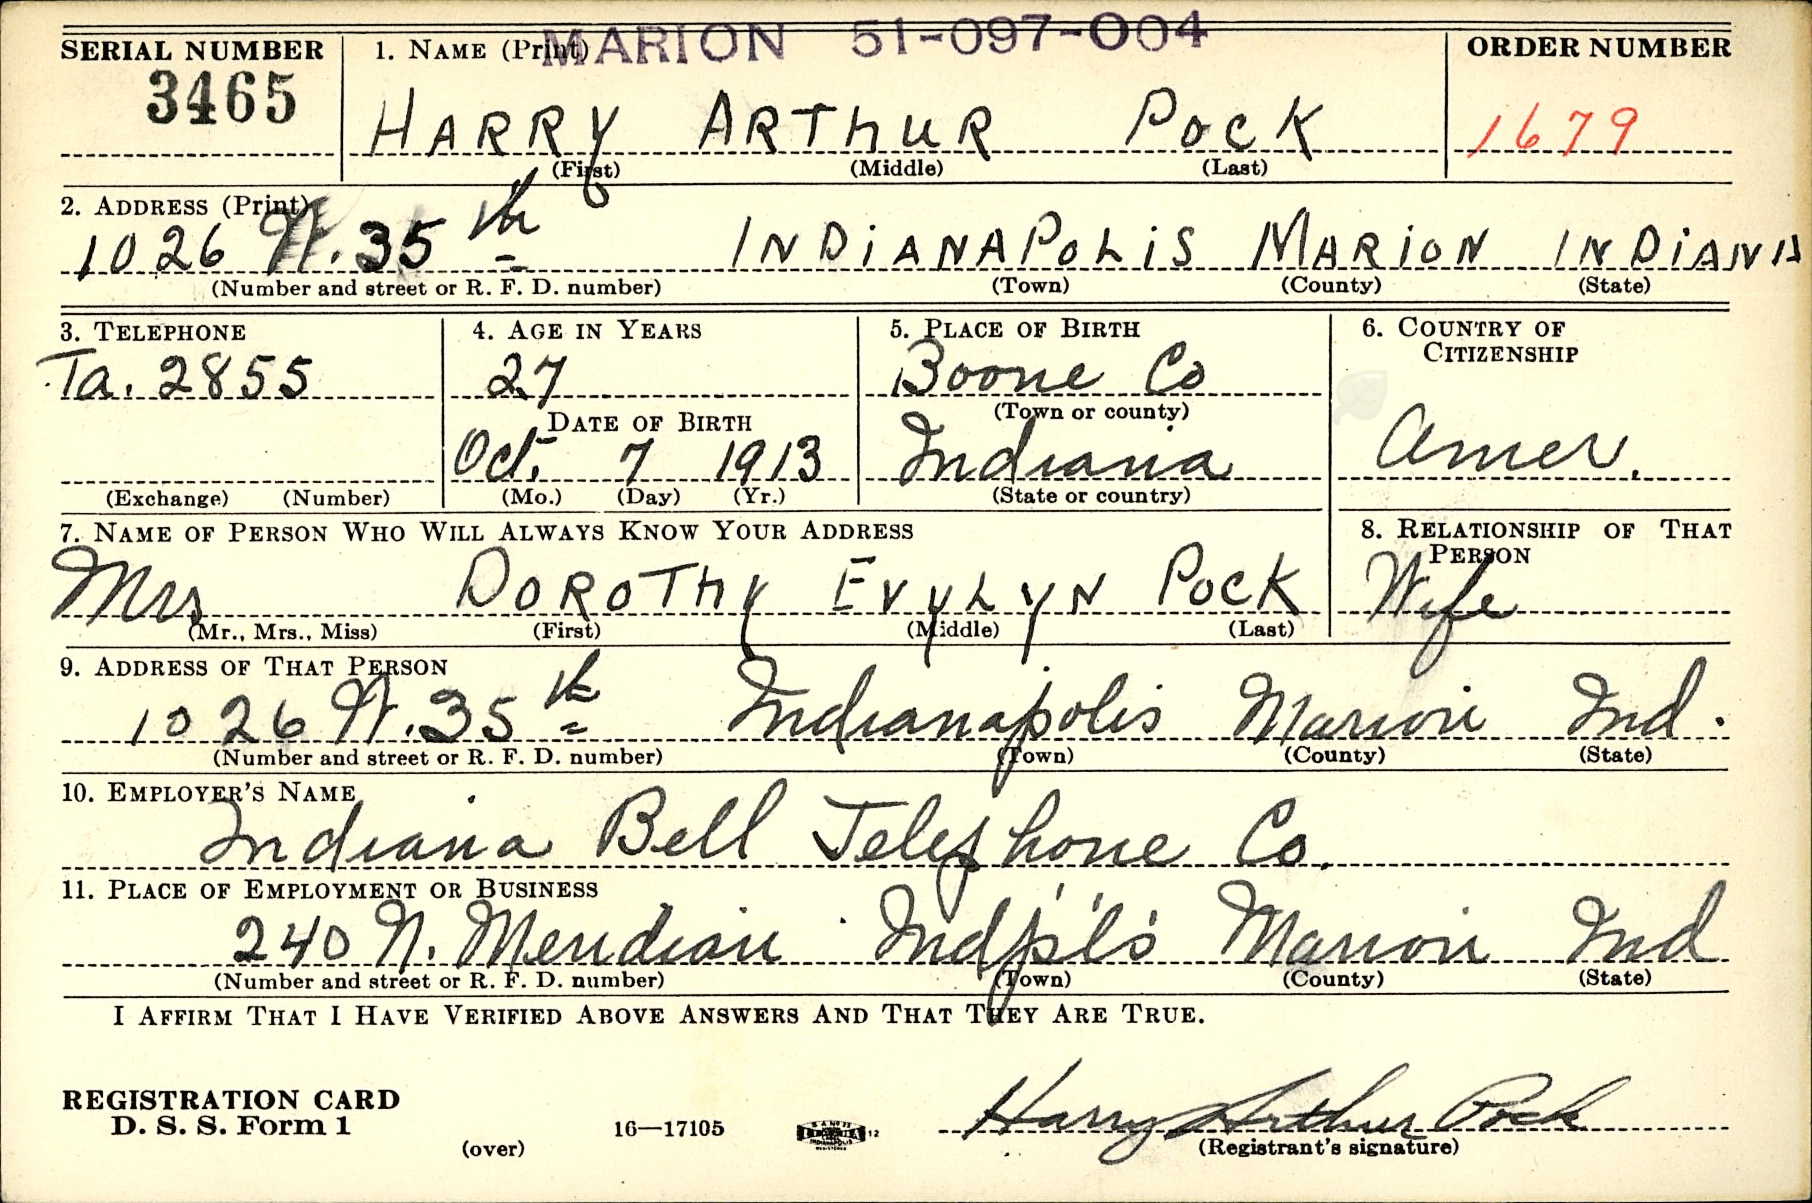 MARION 51-097-004
SERIAL NUMBER 1. NAME (Print) ORDER NUMBER
3465 HARRY ARTHUR POCK 1679
(First) (Middle) (Last)
2. ADDRESS (Print)
1026 W. 35th INDIANAPOLIS MARION INDIANA
(Number and street or R. F. D. number) (Town) (County) (State)
3. TELEPHONE 4. AGE IN YEARS 5. PLACE OF BIRTH 6. COUNTRY OF
CITIZENSHIP
Ta. 2855 27 Boone Co
(Town or county)
DATE OF BIRTH
Oct. 7 1913 Indiana Amer.
(Exchange) (Number) (Mo.) (Day) (Yr.) (State or country)
7. NAME OF PERSON WHO WILL ALWAYS KNOW YOUR ADDRESS 8. RELATIONSHIP OF THAT
PERSON
Mrs DOROTHY EVYLYN POCK Wife
(Mr., Mrs., Miss) (First) (Middle) (Last)
9. ADDRESS OF THAT PERSON
1026 W. 35th Indianapolis Marion Ind.
(Number and street or R. F. D. number) (Town) (County) (State)
10. EMPLOYER'S NAME
Indiana Bell Telephone Co.
11. PLACE OF EMPLOYMENT OR BUSINESS
240 N. Meridian Indp'l's Marion Ind
(Number and street or R. F. D. number) (Town) (County) (State)
I AFFIRM THAT I HAVE VERIFIED ABOVE ANSWERS AND THAT THEY ARE TRUE.
REGISTRATION CARD
D. S. S. Form 1 16—17105 12 Harry Arthur Pock
(over) (Registrant's signature)